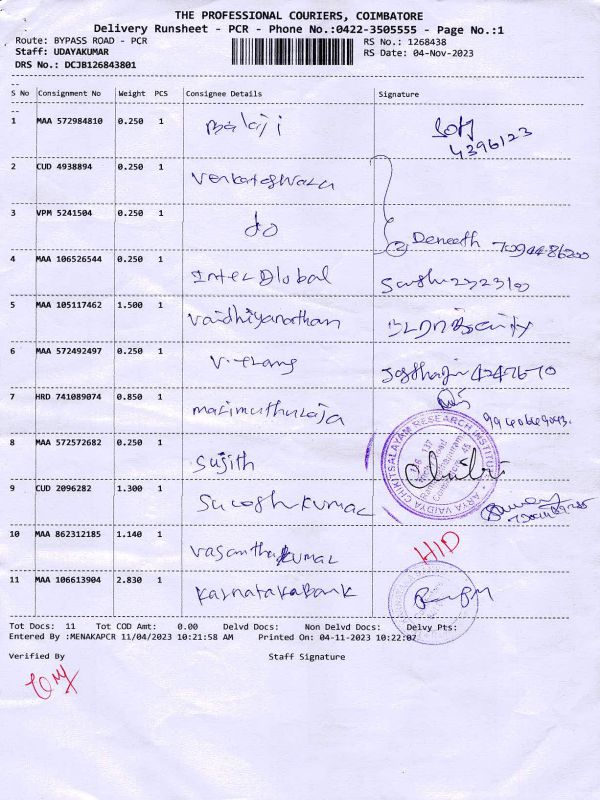 THE PROFESSIONAL COURIERS, COIMBATORE
Delivery Runsheet - PCR - Phone No.:0422-3505555 - Page No.:1
Route: BYPASS ROAD - PCR RS No.: 1268438
Staff: UDAYAKUMAR RS Date: 04-Nov-2023
DRS No.: DCJB126843801
S No Consignment No Weight PCS Consignee Details Signature
1 MAA 572984810 0.250 1 Balaji
4396123
2 CUD 4938894 0.250 1 Venkateswara
3 VPM 5241504 0.250 1 do
② Deneeth 7094486200
4 MAA 106526544 0.250 1 InterGlobal
5 MAA 105117462 1.500 1 Vaidhiyanathan
6 MAA 572492497 0.250 1
7 HRD 741089074 0.850 1 Marimuthuraja
8 MAA 572572682 0.250 1 Sujith
ARYA VAIDYA CHIKITSALAYAM RESEARCH INSTITUTE
136 / 137
9 CUD 2096282 1.300 1 Sureshkumar
10 MAA 862312185 1.140 1 Vasanthakumar HID
11 MAA 106613904 2.830 1 Karnataka Bank
Tot Docs: 11 Tot COD Amt: 0.00 Delvd Docs: Non Delvd Docs: Delvy Pts:
Entered By :MENAKAPCR 11/04/2023 10:21:58 AM Printed On: 04-11-2023 10:22:07
Verified By Staff Signature